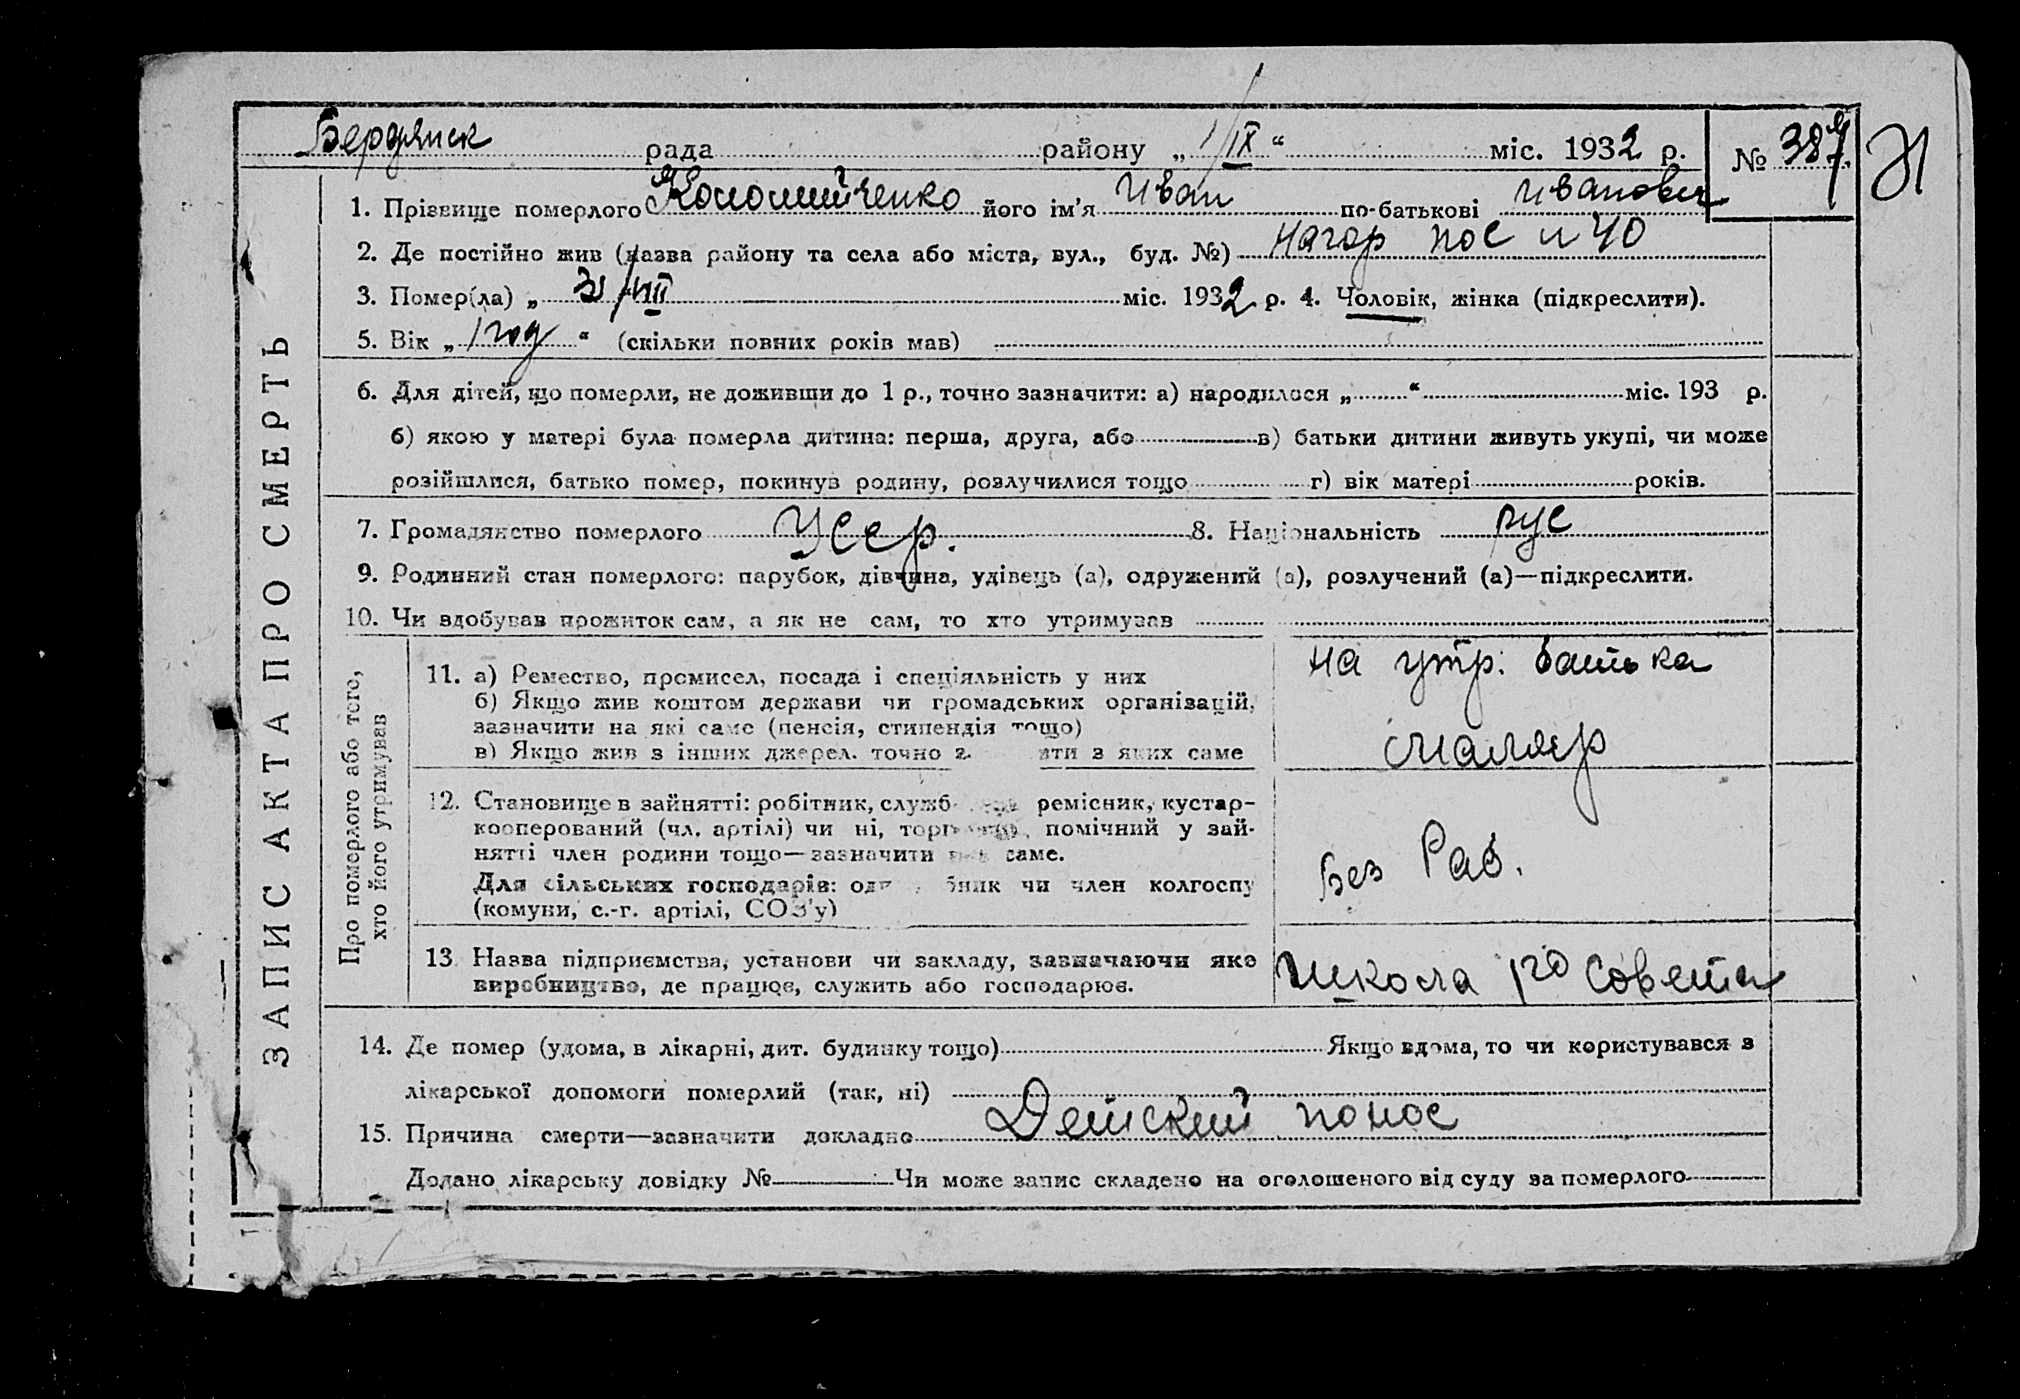 Бердянск рада района „1/IX“ міс. 1932 р. № 387
1. Прізвище померлого Коломийченко його ім'я Иван по-батькові Иванович
2. Де постійно жив (назва району та села або міста, вул., буд. №) Нагор пос и 40
3. Помер(ла) „31/VIII міс. 1932 р. 4. Чоловік, жінка (підкреслити).
5. Вік „1 год“ (скільки повних років мав)
6. Для дітей, що померли, не доживши до 1 р., точно зазначити: а) народилося „ “ міс. 193 р.
б) якою у матері була померла дитина: перша, друга, або в) батьки дитини живуть укупі, чи може
розійшлися, батько помер, покинув родину, розлучилися тощо г) вік матері років.
7. Громадянство померлого Усср. 8. Національність рус
9. Родинний стан померлого: парубок, дівчина, удівець (а), одружений (а), розлучений (а)—підкреслити.
10. Чи здобував прожиток сам, а як не сам, то хто утримував
ЗАПИС АКТА ПРО СМЕРТЬ
Про померлого або того,
хто його утримував
11. а) Ремество, промисел, посада і спеціяльність у них
б) Якщо жив коштом держави чи громадських організацій,
зазначити на які саме (пенсія, стипендія тощо)
в) Якщо жив з інших джерел. точно з ати з яких саме
на утр. батька
маляр
12. Становище в зайнятті: робітник, служб ремісник, кустар-
кооперований (чл. артілі) чи ні, торг помічний у зай-
нятті член родини тощо—зазначити саме.
Для сільських господарів: од бник чи член колгоспу
(комуни, с.-г. артілі, СОЗ'у)
Без Раб.
13. Назва підприємства, установи чи закладу, зазначаючи яке
виробництво, де працює, служить або господарює.
Школа го Совета
14. Де помер (удома, в лікарні, дит. будинку тощо) Якщо вдома, то чи користувався з
лікарської допомоги померлий (так, ні)
15. Причина смерти—зазначити докладно Детский понос
Додано лікарську довідку № Чи може запис складено на оголошеного від суду за померлого